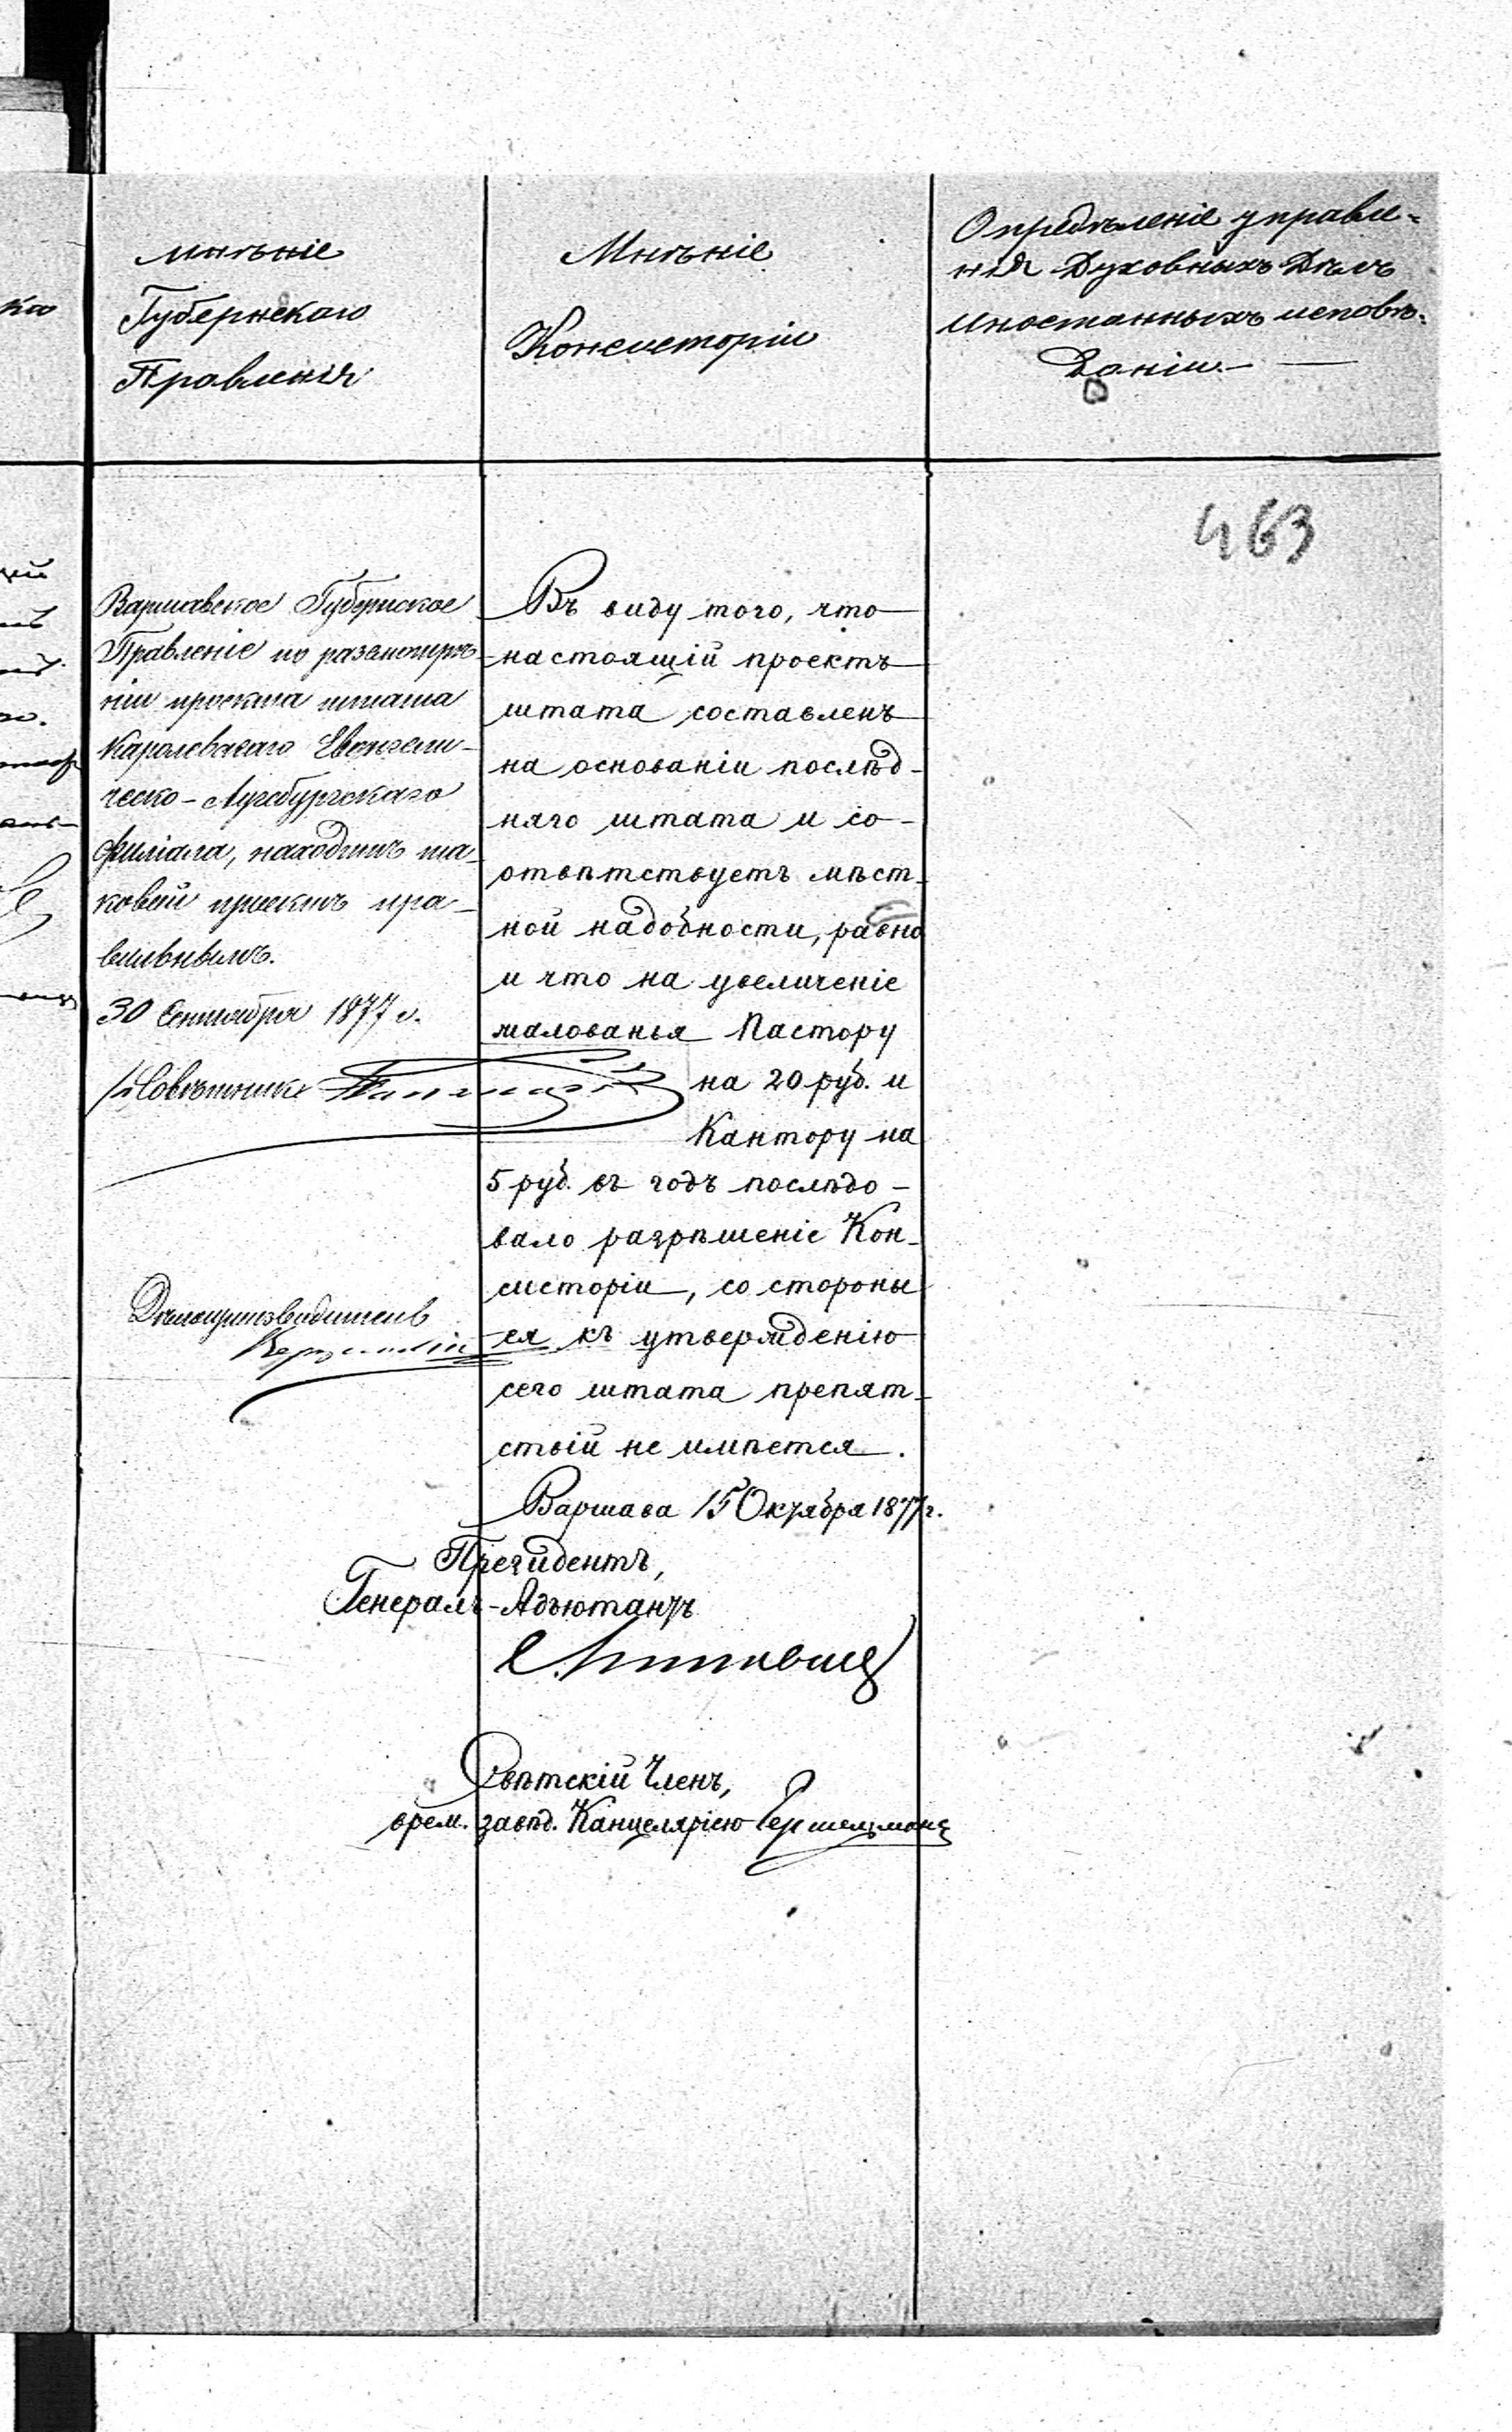 Мнѣніе
Губернскаго
Правленія
Мнѣніе
Консисторіи
Опредѣленіе управле-
нія Духовныхъ Дѣлъ
Иностранныхъ исповѣ-
даніи. —
463
Варшавское Губернское
Правленіе по разсмотрѣ-
ніи проекта штата
Каролевскаго Евангели-
ческо-Аугсбургскаго
филіала, находитъ та-
ковой проектъ пра-
вильнымъ.
30 Сентября 1877 г.
Совѣтникъ
Дѣлопроизводитель
Въ виду того, что
настоящій проектъ
штата составленъ
на основаніи послѣд-
няго штата и со-
отвѣтствуетъ мѣст-
ной надобности, равно
и что на увеличеніе
жалованья Пастору
на 20 руб. и
Кантору на
5 руб. въ годъ послѣдо-
вало разрѣшеніе Кон-
систоріи, со стороны
ея къ утвержденію
сего штата препят-
ствій не имѣется.
Варшава 15 Октября 1877 г.
Президентъ,
Генералъ-Адъютантъ
Свѣтскій Членъ,
врем. завѣд. Канцеляріею